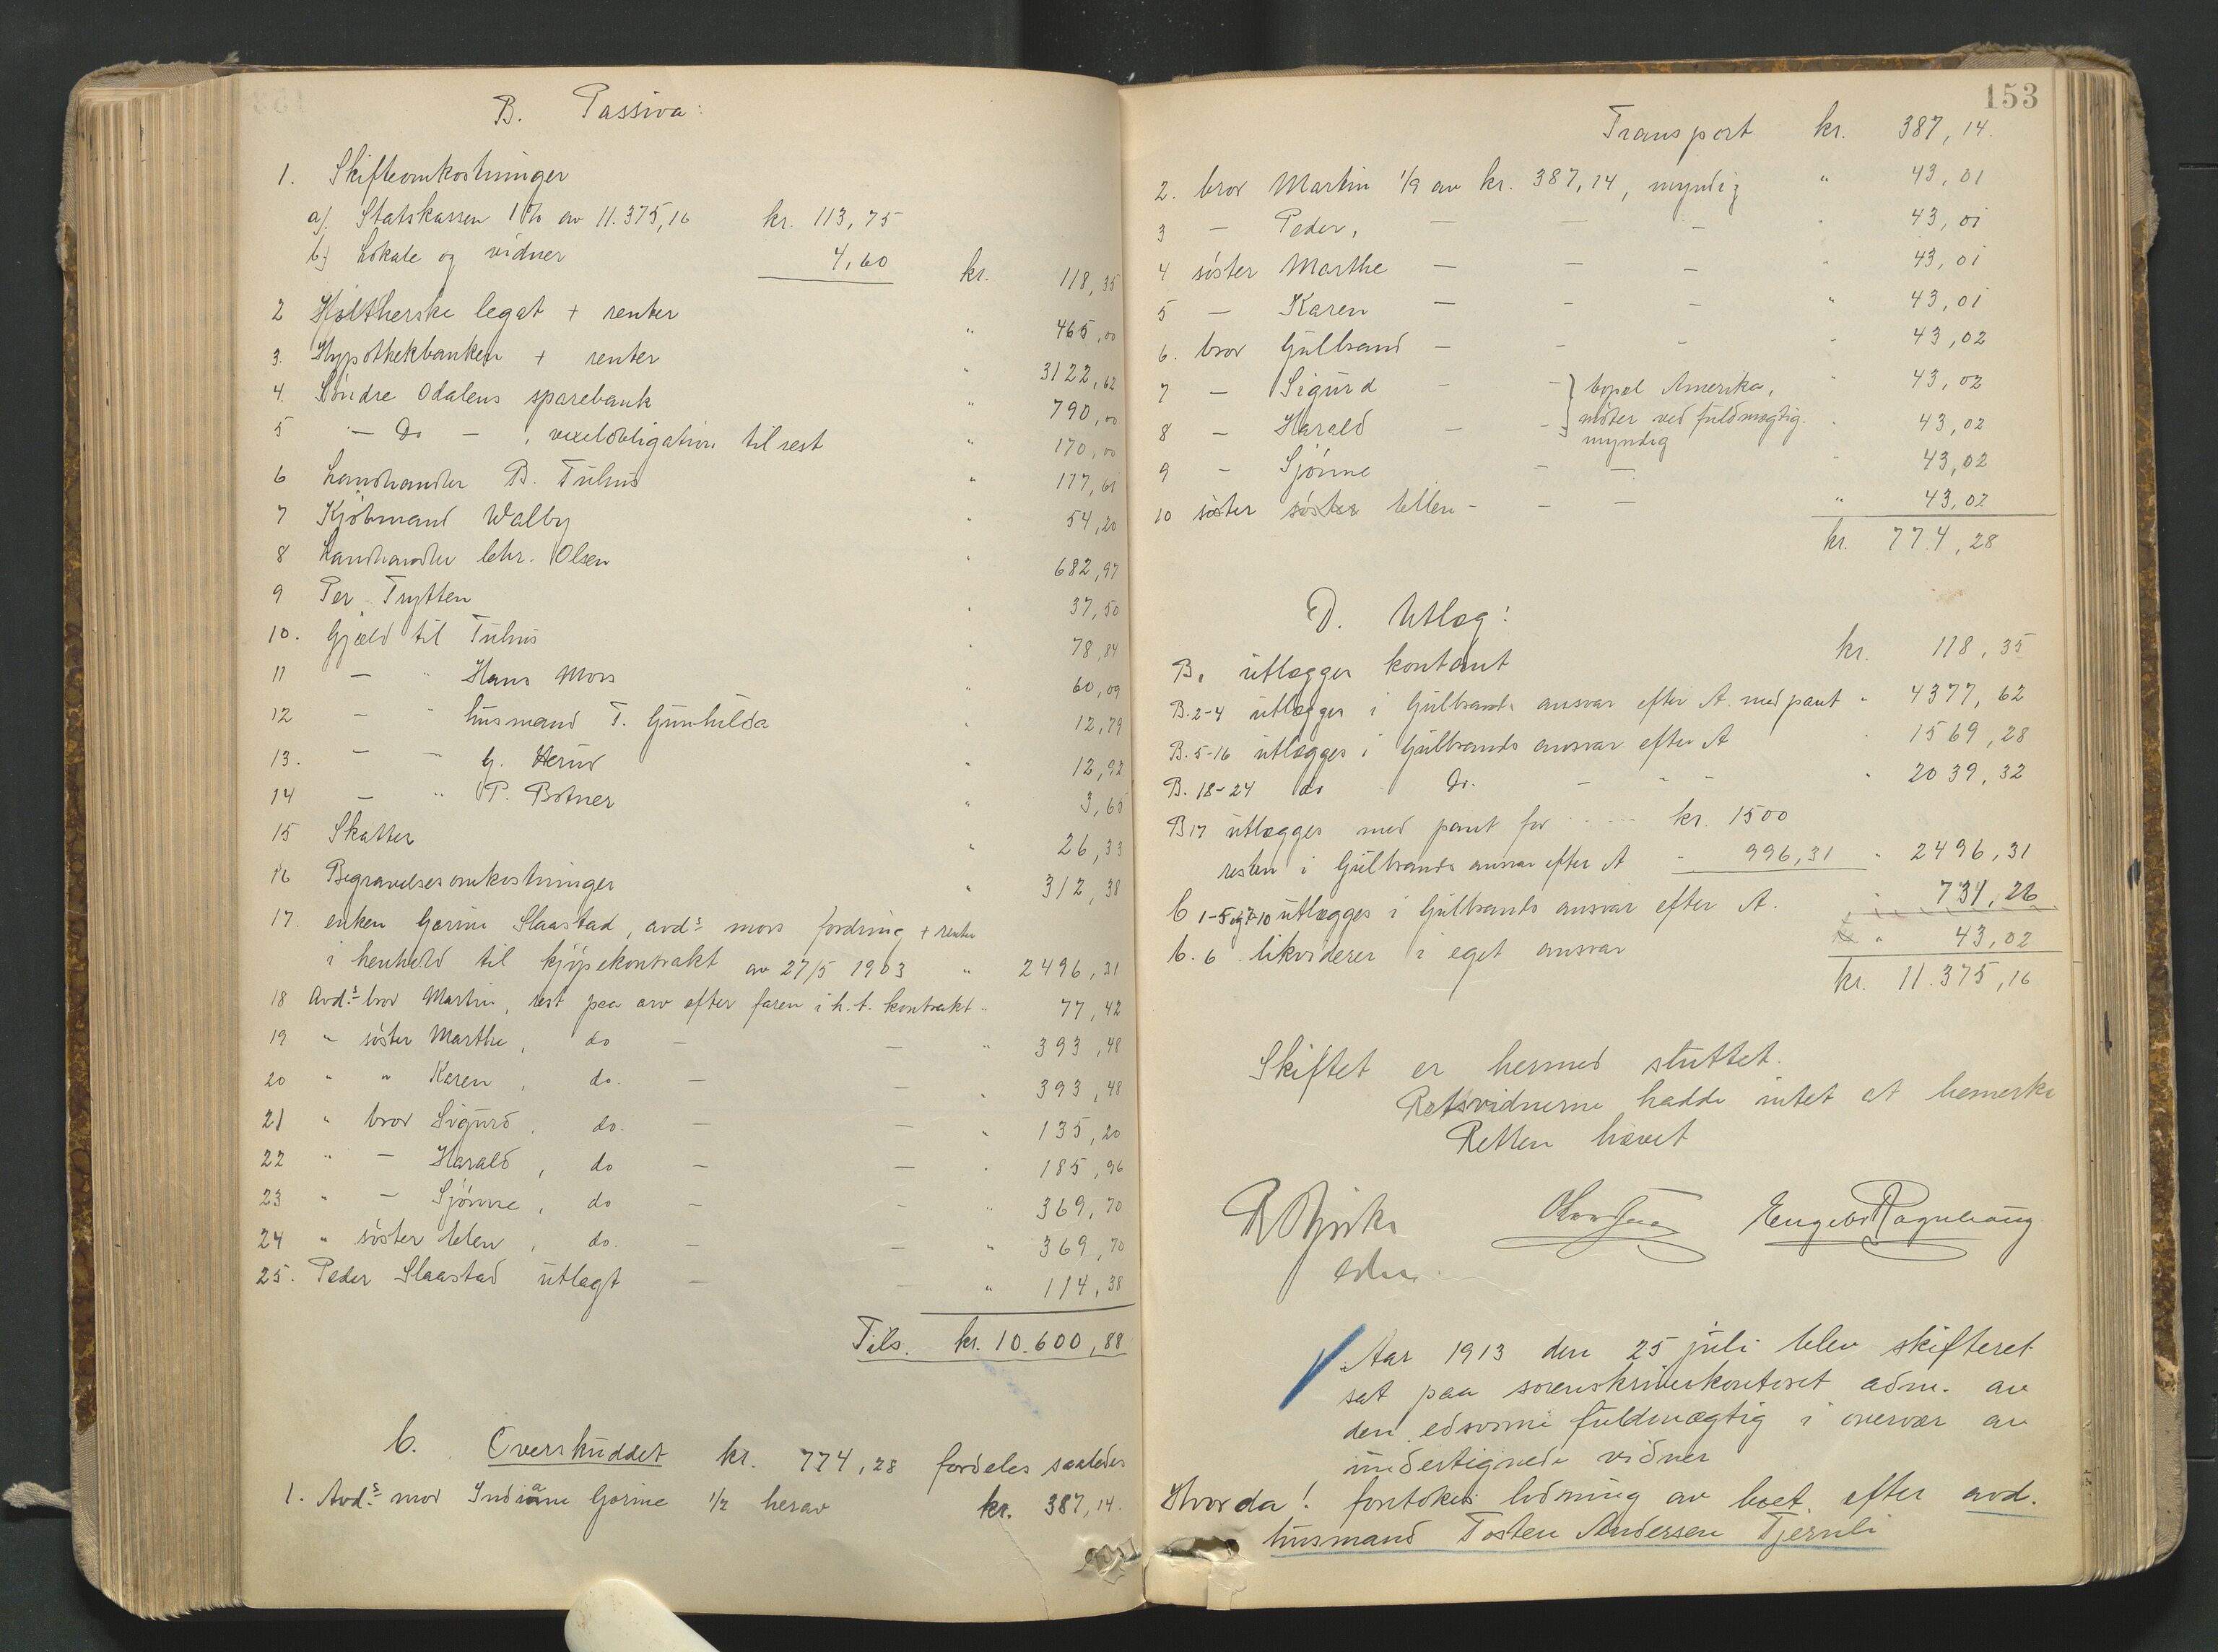 B. Passiva:
1. Skifteomkostninger
a). Statskassen 1% av 11.375,16 kr. 113,75
b) Lokale og vidner 4,60 kr. 118,35
2 Holtherske legat + renter " 465,00
3. Hypothekbanken + renter " 3122,62
4. Söndre Odalens sparebank " 790,00
5 - Do - , vexelobligation til rest " 170,00
6 Landhandler B. Tuhus " 177,61
7 Kjöbmand Walby " 54,20
8 Landhandler Chr. Olsen " 682,97
9 Per Trytten " 37,50
10. Gjæld til Tuhus " 78,84
11 - " Hans Moss " 60,09
12 - " husmand T. Gunhilda " 12,79
13. - " G. Herud " 12,92
14 - " P. Botner " 3,65
15 Skatter " 26,33
16 Begravelsesomkostninger " 312,38
17. enken Gorine Slaastad, avd.s mors fordring + renter
i henhold til kjöpekontrakt av 27/5 1903 " 2496,31
18 Avd.s bror Martin, rest paa arv efter faren i h.t. kontrakt " 77,42
19 " söster Marthe, do - - " 393,48
20 " " Karen, do. - - " 393,48
21 " bror Sigurd, do. - - " 135,20
22 " - Harald, do - - " 185,96
23 " - Sjönne, do - - " 369,70
24 " söster Ellen, do. - - " 369,70
25. Peder Slaastad utlagt - - " 114,38
Tils. kr. 10.600,88
C. Overskuddet kr. 774,28 fordeles saaledes
1. Avd.s mor Indiane Gorine 1/2 herav kr. 387,14.
153
Transport kr. 387,14.
2. bror Martin 1/9 av kr. 387,14, myndig " 43,01
3 - Peder, - - - " 43,01
4 söster Marthe - - - " 43,01
5 - Karen - - - " 43,01
6. bror Gulbrand - - - " 43,02
7 - Sigurd - - } bopæl Amerika, " 43,02
8 - Harald - - möter ved fuldmægtig. " 43,02
myndig
9 - Sjönne - - " 43,02
10 söster söster Ellen - - - " 43,02
kr. 774,28
D. Utlæg:
B1 utlægges kontant kr. 118,35
B.2-4 utlægges i Gulbrands ansvar efter A. med pant " 4377,62
B.5-16 utlægges i Gulbrands ansvar efter A " 1569,28
B.18-24 do do. - " - " 2039,32
B17 utlægges med pant for kr. 1500
resten i Gulbrands ansvar efter A " 996,31 " 2496,31
C 1-5 og 7-10 utlægges i Gulbrands ansvar efter A. " 734,26
C.6 likviderer i eget ansvar " 43,02
kr. 11.375,16
Skiftet er hermed sluttet.
Retsvidnerne hadde intet at bemerke
Retten hævet
Engebr Ragnhaug
Aar 1913 den 25 juli blev skifteret
sat paa sorenskriverkontoret adm. av
den edsvorne fuldmægtig i overvær av
undertegnede vidner
Hvorda! foretokes lodning av boet efter avd.
husmand Tosten Andersen Tjernli